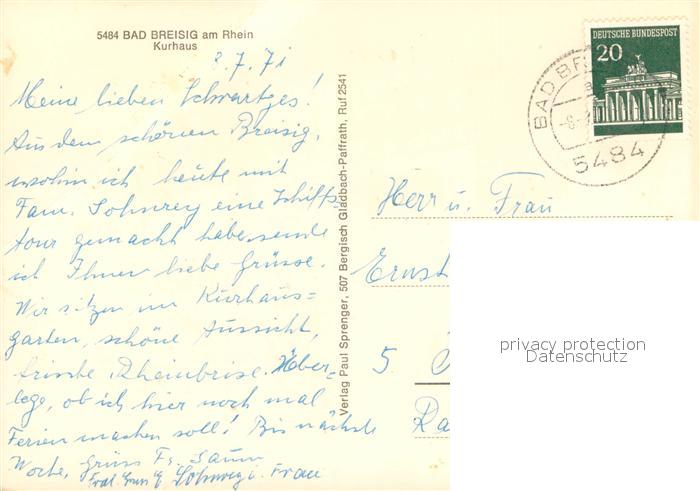 5484 BAD BREISIG am Rhein
Kurhaus
8.7.71
Meine lieben Schwartzes!
Aus dem schönen Breisig,
wohin ich heute mit
Fam. Sohnrey eine Schiffs-
tour gemacht habe, sende
ich Ihnen liebe Grüsse.
Wir sitzen im Kurhaus=
garten, schöne Aussicht,
frische Rheinbrise. Über=
lege, ob ich hier noch mal
Ferien machen soll! Bis nächste
Woche, Gruss Fr.
Gruss u. Frau
Verlag Paul Sprenger, 507 Bergisch Gladbach-Paffrath, Ruf 2541
DEUTSCHE BUNDESPOST
20
BAD BR
-8.-
5484
Herr u. Frau
Ernst
5
Ra
privacy protection
Datenschutz